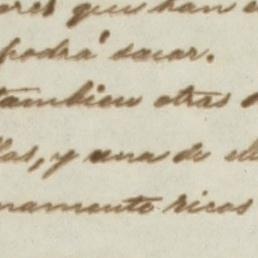 ores que han e
podrá sacar.
tambien otras
las, y una de el
namente ricos